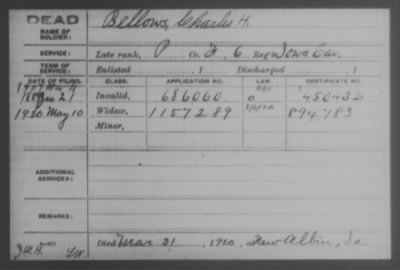 DEAD
NAME OF SOLDIER:
Bellows, Charles H.
SERVICE:
Late rank, P Co. F, 6 Reg't Iowa Cav.
TERM OF SERVICE:
Enlisted , 1 Discharged , 1
DATE OF FILING. CLASS. APPLICATION NO. LAW. CERTIFICATE NO.
Invalid, 686060 450432
1920 May 10 Widow, 1157289 894,783
Minor,
ADDITIONAL SERVICES:
REMARKS:
Died Mar 31, 1920, at New Albin, Ia